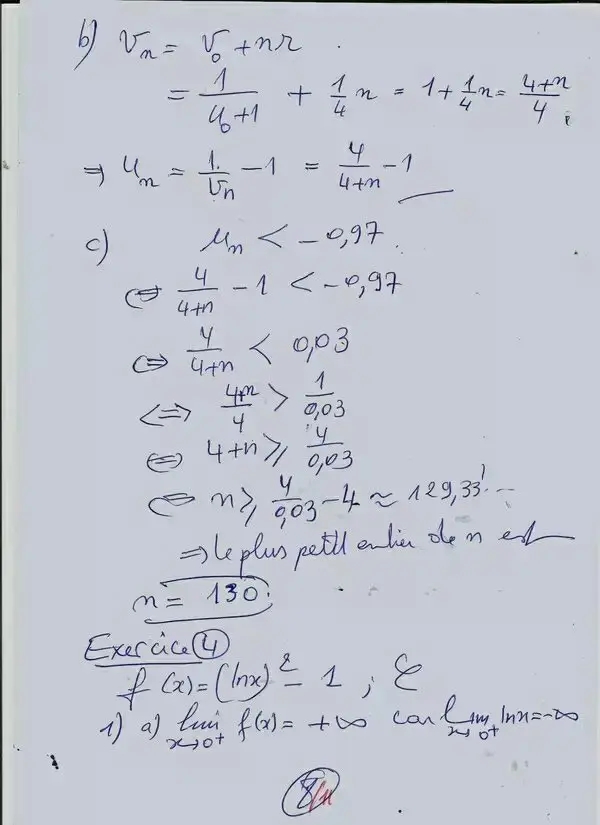 b) Vn = V₀ + nr.
= 1/(u₀+1) + 1/4 n = 1 + 1/4 n = (4+n)/4 ;
⇒ un = 1/Vn - 1 = 4/(4+n) - 1
c) un < -0,97.
⇔ 4/(4+n) - 1 < -0,97
⇔ 4/(4+n) < 0,03
⇔ (4+n)/4 > 1/0,03
⇔ 4+n ⩾ 4/0,03
⇔ n ⩾ 4/0,03 - 4 ≈ 129,33...
⇒ le plus petit entier de n est
n = 130.
Exercice 4
f(x) = (lnx)² - 1 ; C
1) a) lim x→0⁺ f(x) = +∞ car lim x→0⁺ lnx = -∞